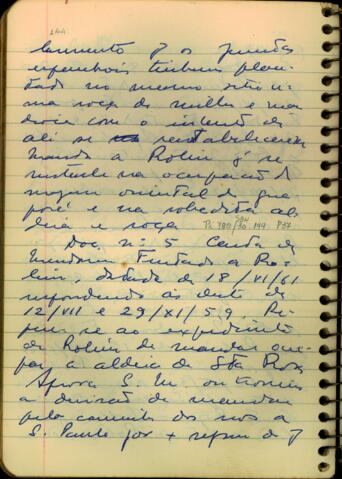 144
lamento q os jesuitas
espanhois tinham plan
tado no mesmo sitio u-
ma roça de milho e man
dioca com o intento de
ali se restabelecerem
manda a Rolim q se
sustente na ocupação d
margem oriental do gua
poré e na sobredita al
deia e roça
Doc. n: 5 Carta de
Mendonça Furtado a Ro-
lim, datada de 18/VI/61
respondendo às deste de
12/VII e 29/XI/59. Re
fere se ao expediente
de Rolim de mandar ocu-
par a aldeia de Sta Rosa
Aprova S. M. outrossim
a decisão de mandar
pelo caminho do rio a
S. Paulo por + de q